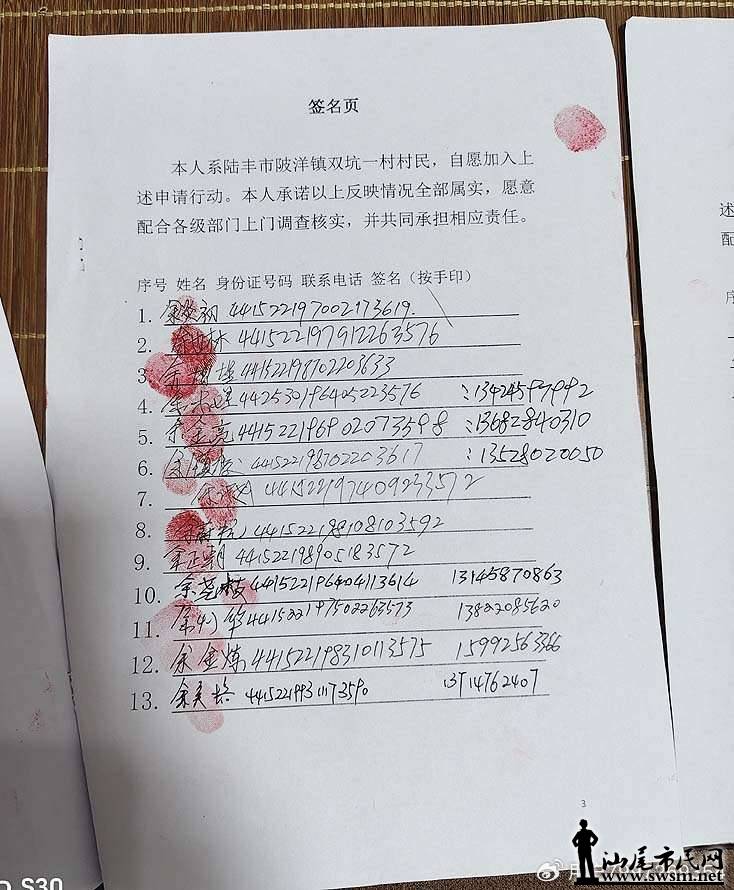 签名页
本人系陆丰市陂洋镇双坑一村村民，自愿加入上
述申请行动。本人承诺以上反映情况全部属实，愿意
配合各级部门上门调查核实，并共同承担相应责任。
序号 姓名 身份证号码 联系电话 签名（按手印）
1. 余 初 441522197002173619.
2. 余 林 441522197912263576
3. 余 441522198702203633
4. 余 442530196405223576 :13424597992
5. 余金亮 441522196902073598 :13682840310
6. 余 441522198702203617 :13528020050
7. 余 441522197409233572
8. 余 441522198108103592
9. 余正朝 441522198905183572
10. 余 441522196404113614 13145870863
11. 余 华 441522197502263573 13822085620
12. 余金 441522198310113575 15992563366
13. 余 441522199311173590 13714762407
3
述
配
S30
汕尾市民网
www.swsm.net